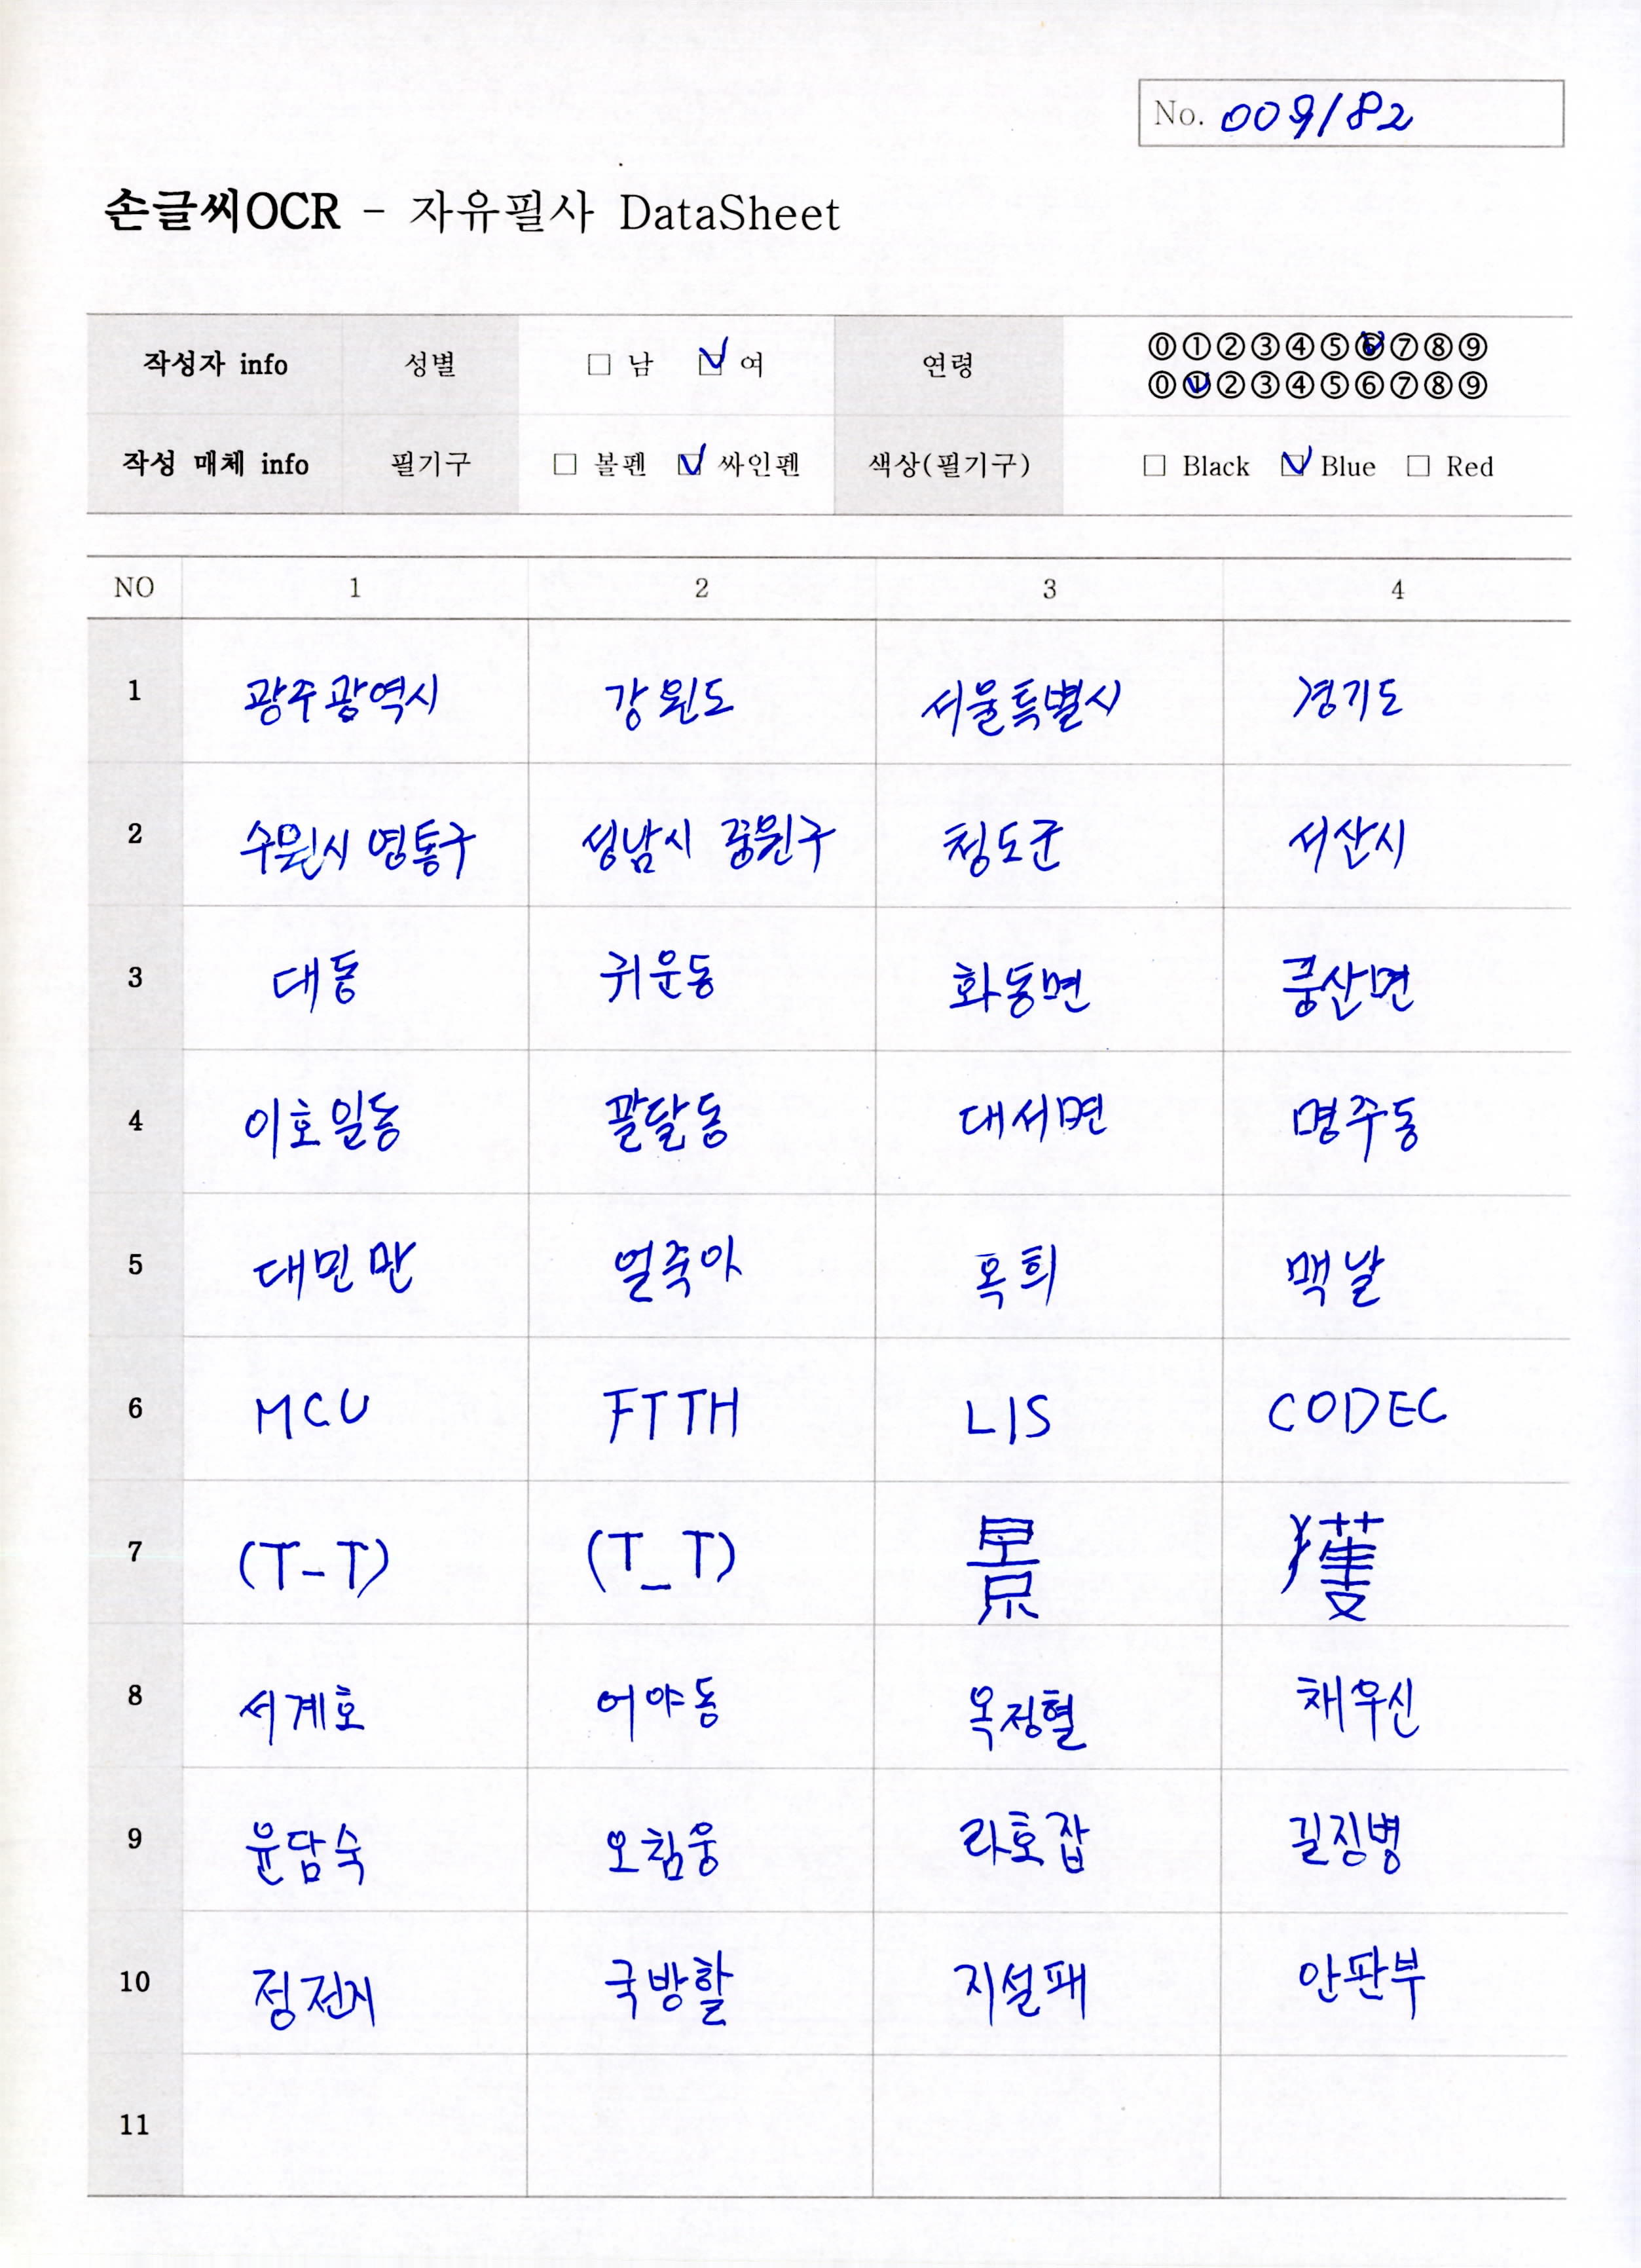 No. 009182
손글씨OCR - 자유필사 DataSheet
작성자 info 성별 □ 남 ☑ 여 연령 ⓪①②③④⑤⑥⑦⑧⑨
⓪①②③④⑤⑥⑦⑧⑨
작성 매체 info 필기구 □ 볼펜 ☑ 싸인펜 색상(필기구) □ Black ☑ Blue □ Red
NO 1 2 3 4
1 광주광역시 강원도 서울특별시 경기도
2 수원시 영통구 성남시 중원구 청도군 서산시
3 대동 귀운동 화동면 풍산면
4 이호일동 팔달동 대서면 명주동
5 대민만 얼죽아 옥희 맥날
6 MCU FTTH LIS CODEC
7 (T-T) (T_T) 景 獲
8 서계호 어야동 옥정혈 채우신
9 윤담숙 오침웅 라호잡 길징병
10 정전지 국방할 지설패 안판부
11